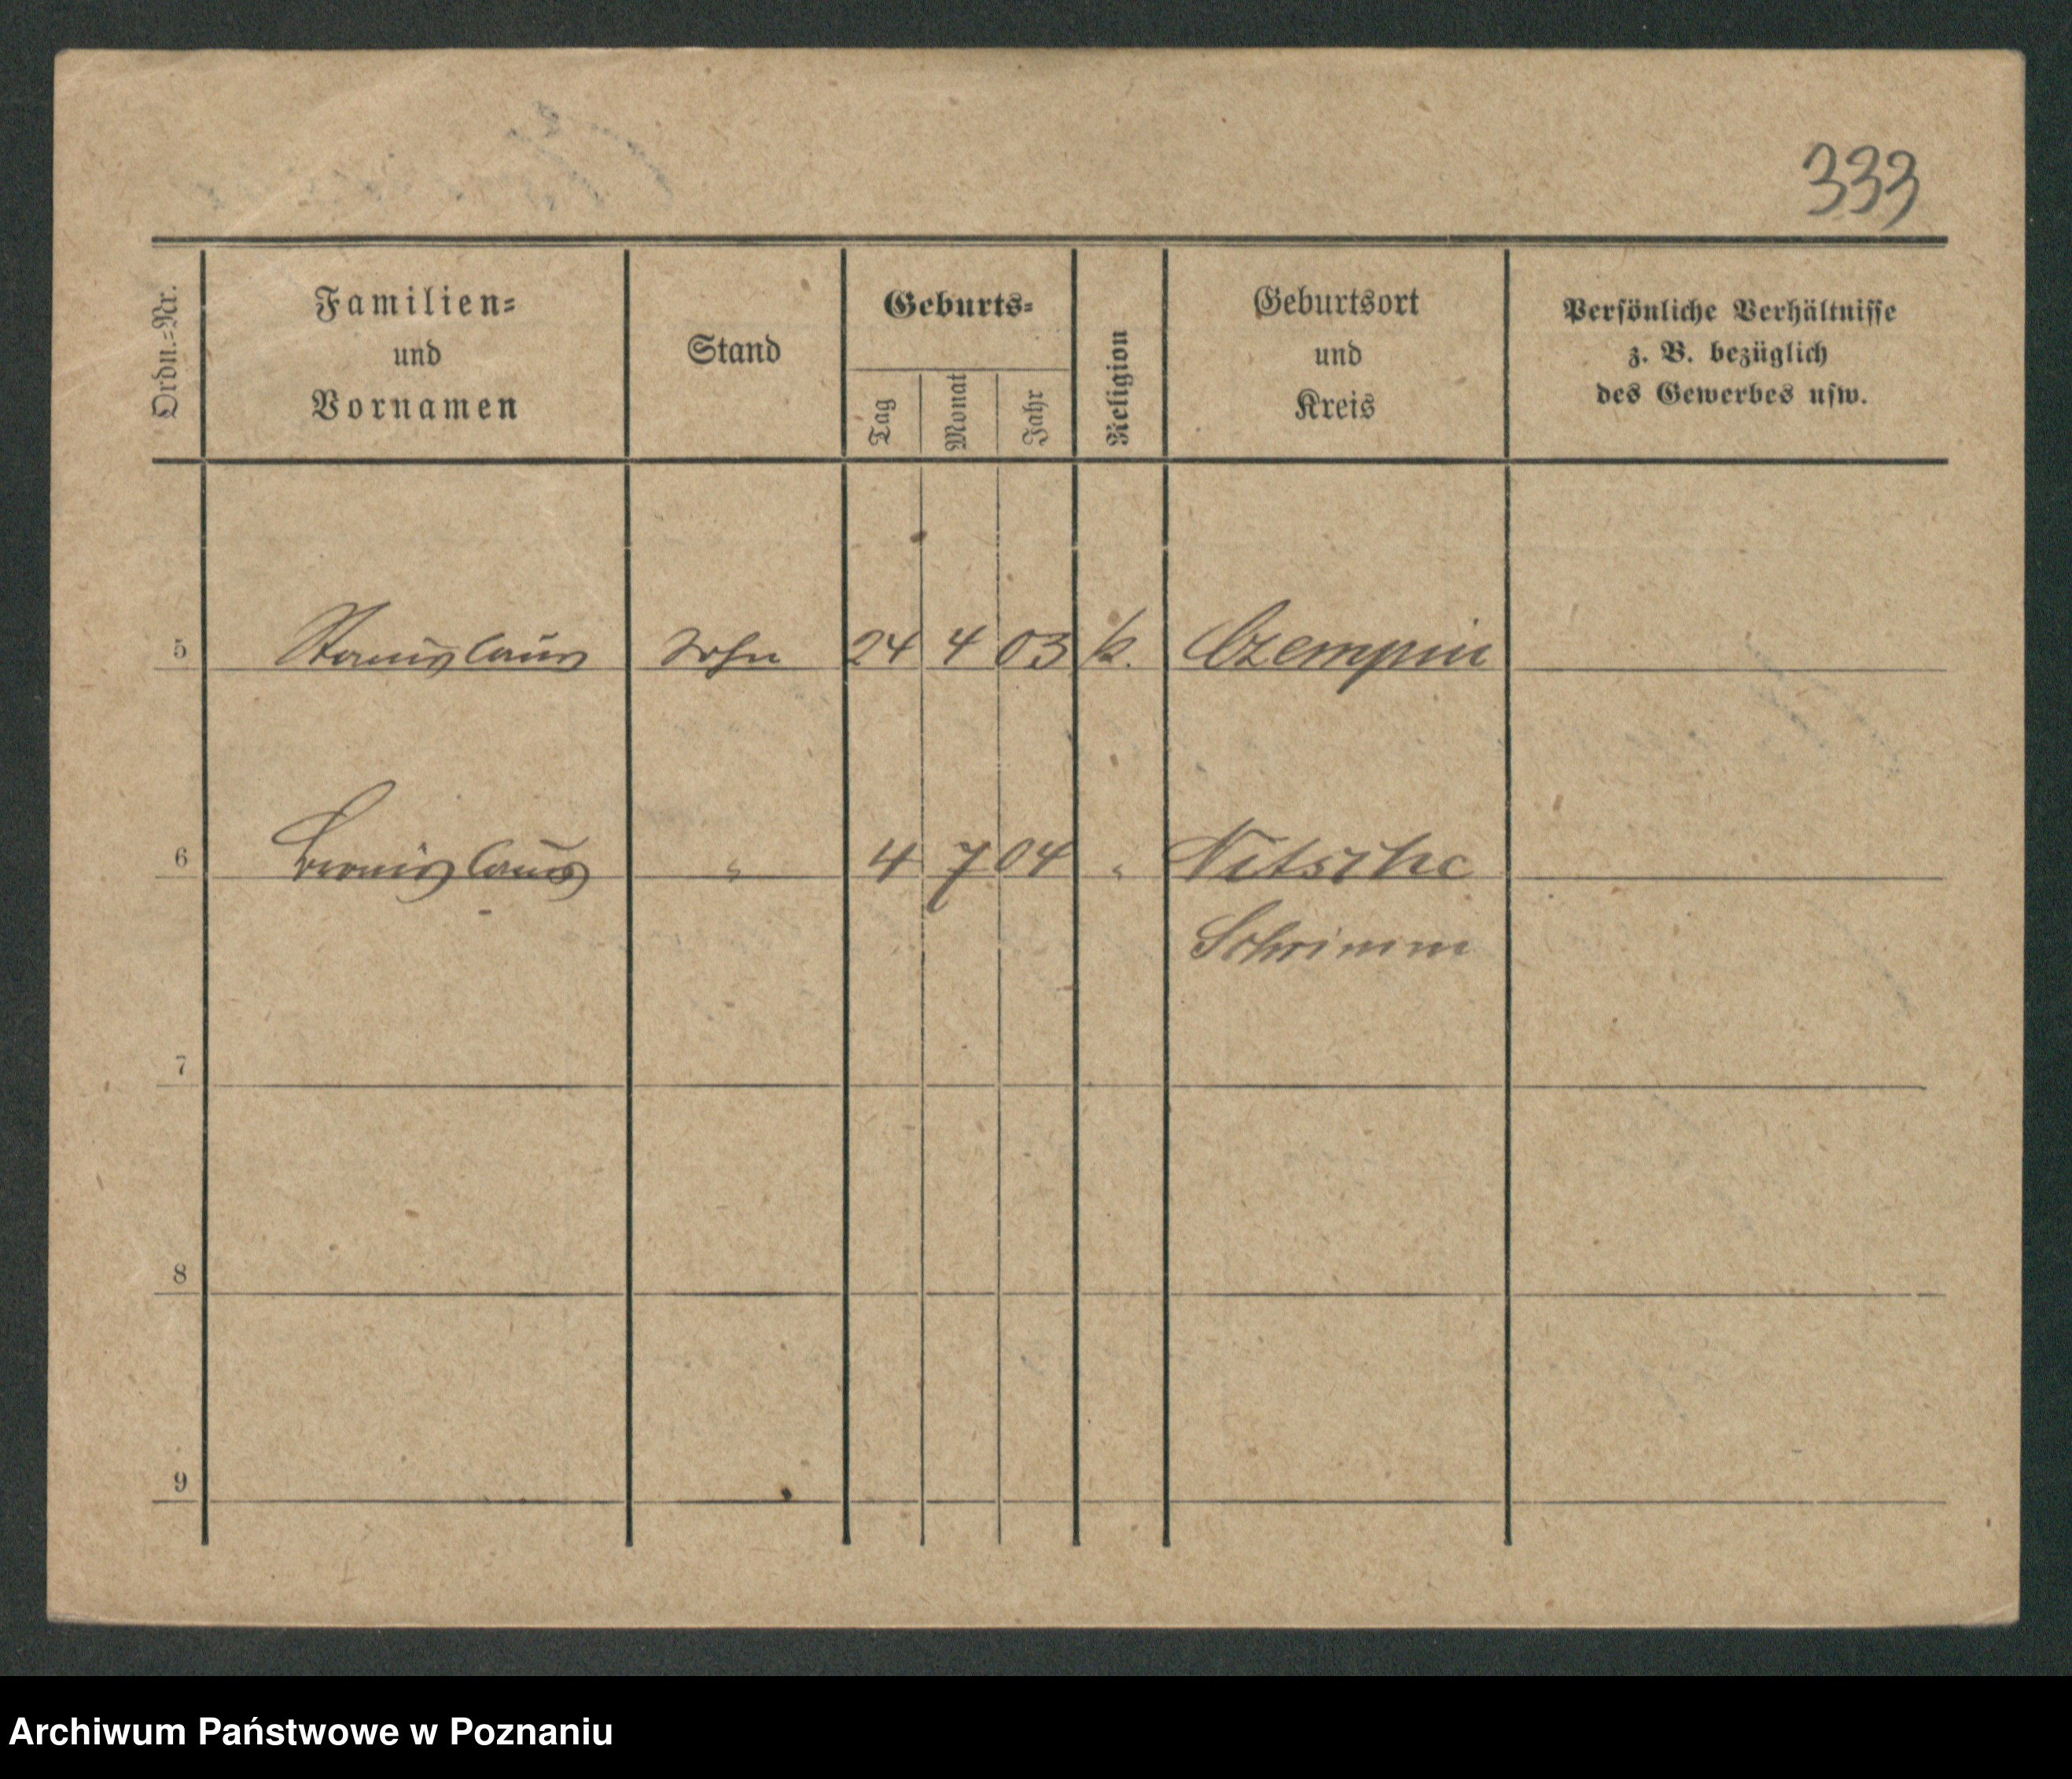 333
Ordn.=Nr.
Familien=
und
Vornamen
Stand
Geburts=
Tag
Monat
Jahr
Religion
Geburtsort
und
Kreis
Persönliche Verhältnisse
z. B. bezüglich
des Gewerbes usw.
5 Stanislaus Sohn 24 4 03 k. Czempin
6 Bronislaus " 4 7 04 " Nitsche
Schrimm
7
8
9
Archiwum Państwowe w Poznaniu